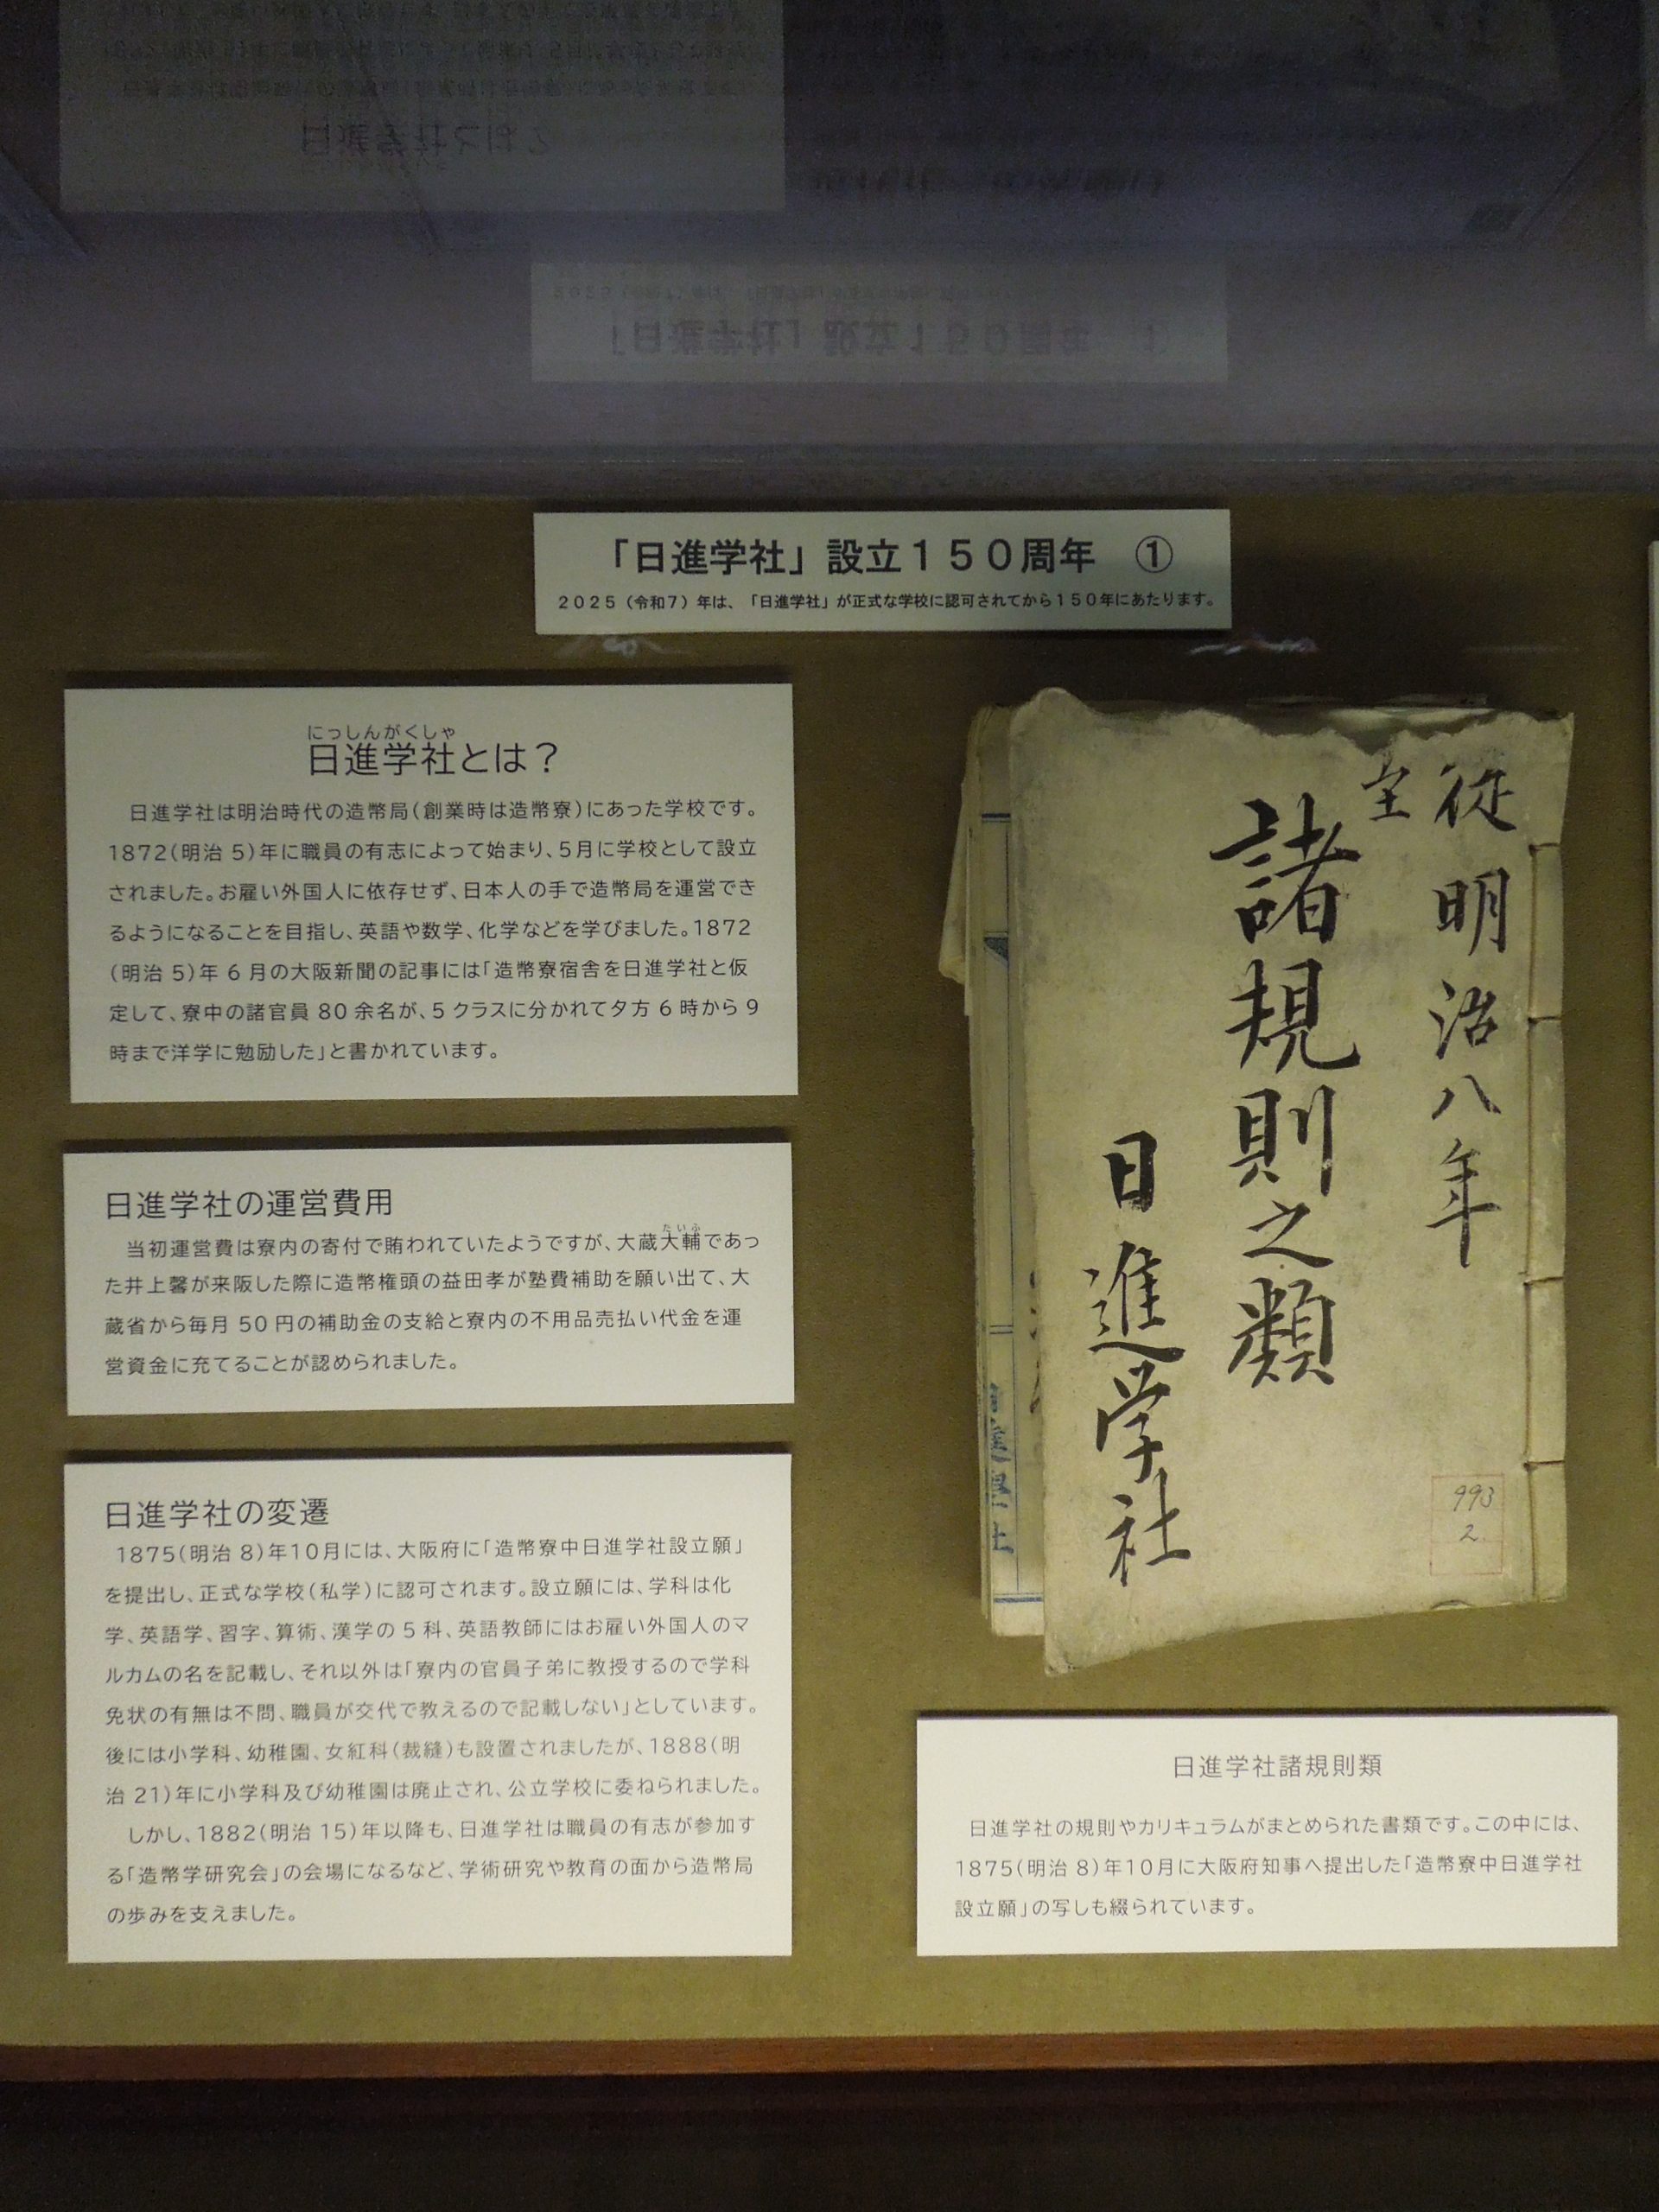 「日進学社」設立１５０周年　①
２０２５（令和７）年は、「日進学社」が正式な学校に認可されてから１５０年にあたります。
にっしんがくしゃ
日進学社とは？
日進学社は明治時代の造幣局（創業時は造幣寮）にあった学校です。
1872（明治 5）年に職員の有志によって始まり、5月に学校として設立
されました。お雇い外国人に依存せず、日本人の手で造幣局を運営でき
るようになることを目指し、英語や数学、化学などを学びました。1872
（明治 5）年 6 月の大阪新聞の記事には「造幣寮宿舎を日進学社と仮
定して、寮中の諸官員 80 余名が、5 クラスに分かれて夕方 6 時から 9
時まで洋学に勉励した」と書かれています。
日進学社の運営費用
たいふ
当初運営費は寮内の寄付で賄われていたようですが、大蔵大輔であっ
た井上馨が来阪した際に造幣権頭の益田孝が塾費補助を願い出て、大
蔵省から毎月 50 円の補助金の支給と寮内の不用品売払い代金を運
営資金に充てることが認められました。
日進学社の変遷
1875（明治 8）年10月には、大阪府に「造幣寮中日進学社設立願」
を提出し、正式な学校（私学）に認可されます。設立願には、学科は化
学、英語学、習字、算術、漢学の 5 科、英語教師にはお雇い外国人のマ
ルカムの名を記載し、それ以外は「寮内の官員子弟に教授するので学科
免状の有無は不問、職員が交代で教えるので記載しない」としています。
後には小学科、幼稚園、女紅科（裁縫）も設置されましたが、1888（明
治 21）年に小学科及び幼稚園は廃止され、公立学校に委ねられました。
しかし、1882（明治 15）年以降も、日進学社は職員の有志が参加す
る「造幣学研究会」の会場になるなど、学術研究や教育の面から造幣局
の歩みを支えました。
従明治八年
至
諸規則之類
日進学社
993
2.
日進学社諸規則類
日進学社の規則やカリキュラムがまとめられた書類です。この中には、
1875（明治 8）年10月に大阪府知事へ提出した「造幣寮中日進学社
設立願」の写しも綴られています。